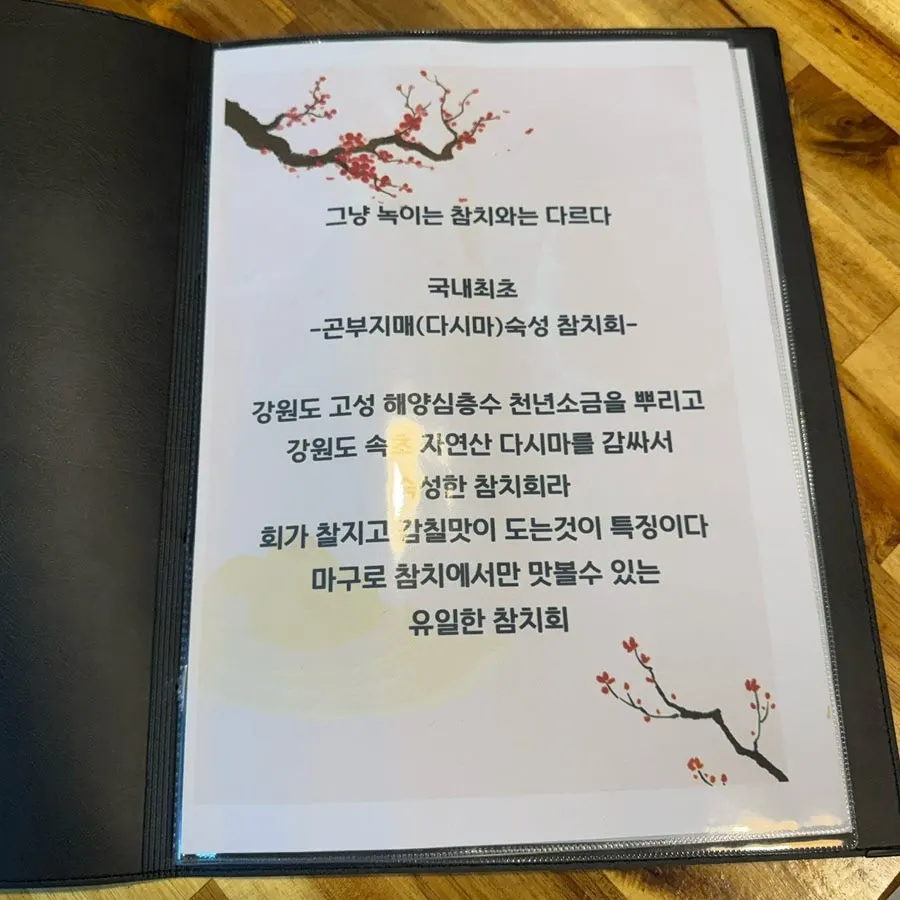 그냥 녹이는 참치와는 다르다
국내최초
-곤부지매(다시마)숙성 참치회-
강원도 고성 해양심층수 천년소금을 뿌리고
강원도 속초 자연산 다시마를 감싸서
숙성한 참치회라
회가 찰지고 감칠맛이 도는것이 특징이다
마구로 참치에서만 맛볼수 있는
유일한 참치회